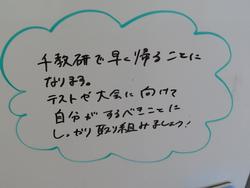 千教研で早く帰ることに
なります。
テストや大会に向けて
自分がするべきことに
しっかり取り組みましょう!